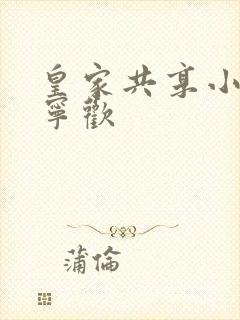 皇家共享小
寧歡
蒲倫